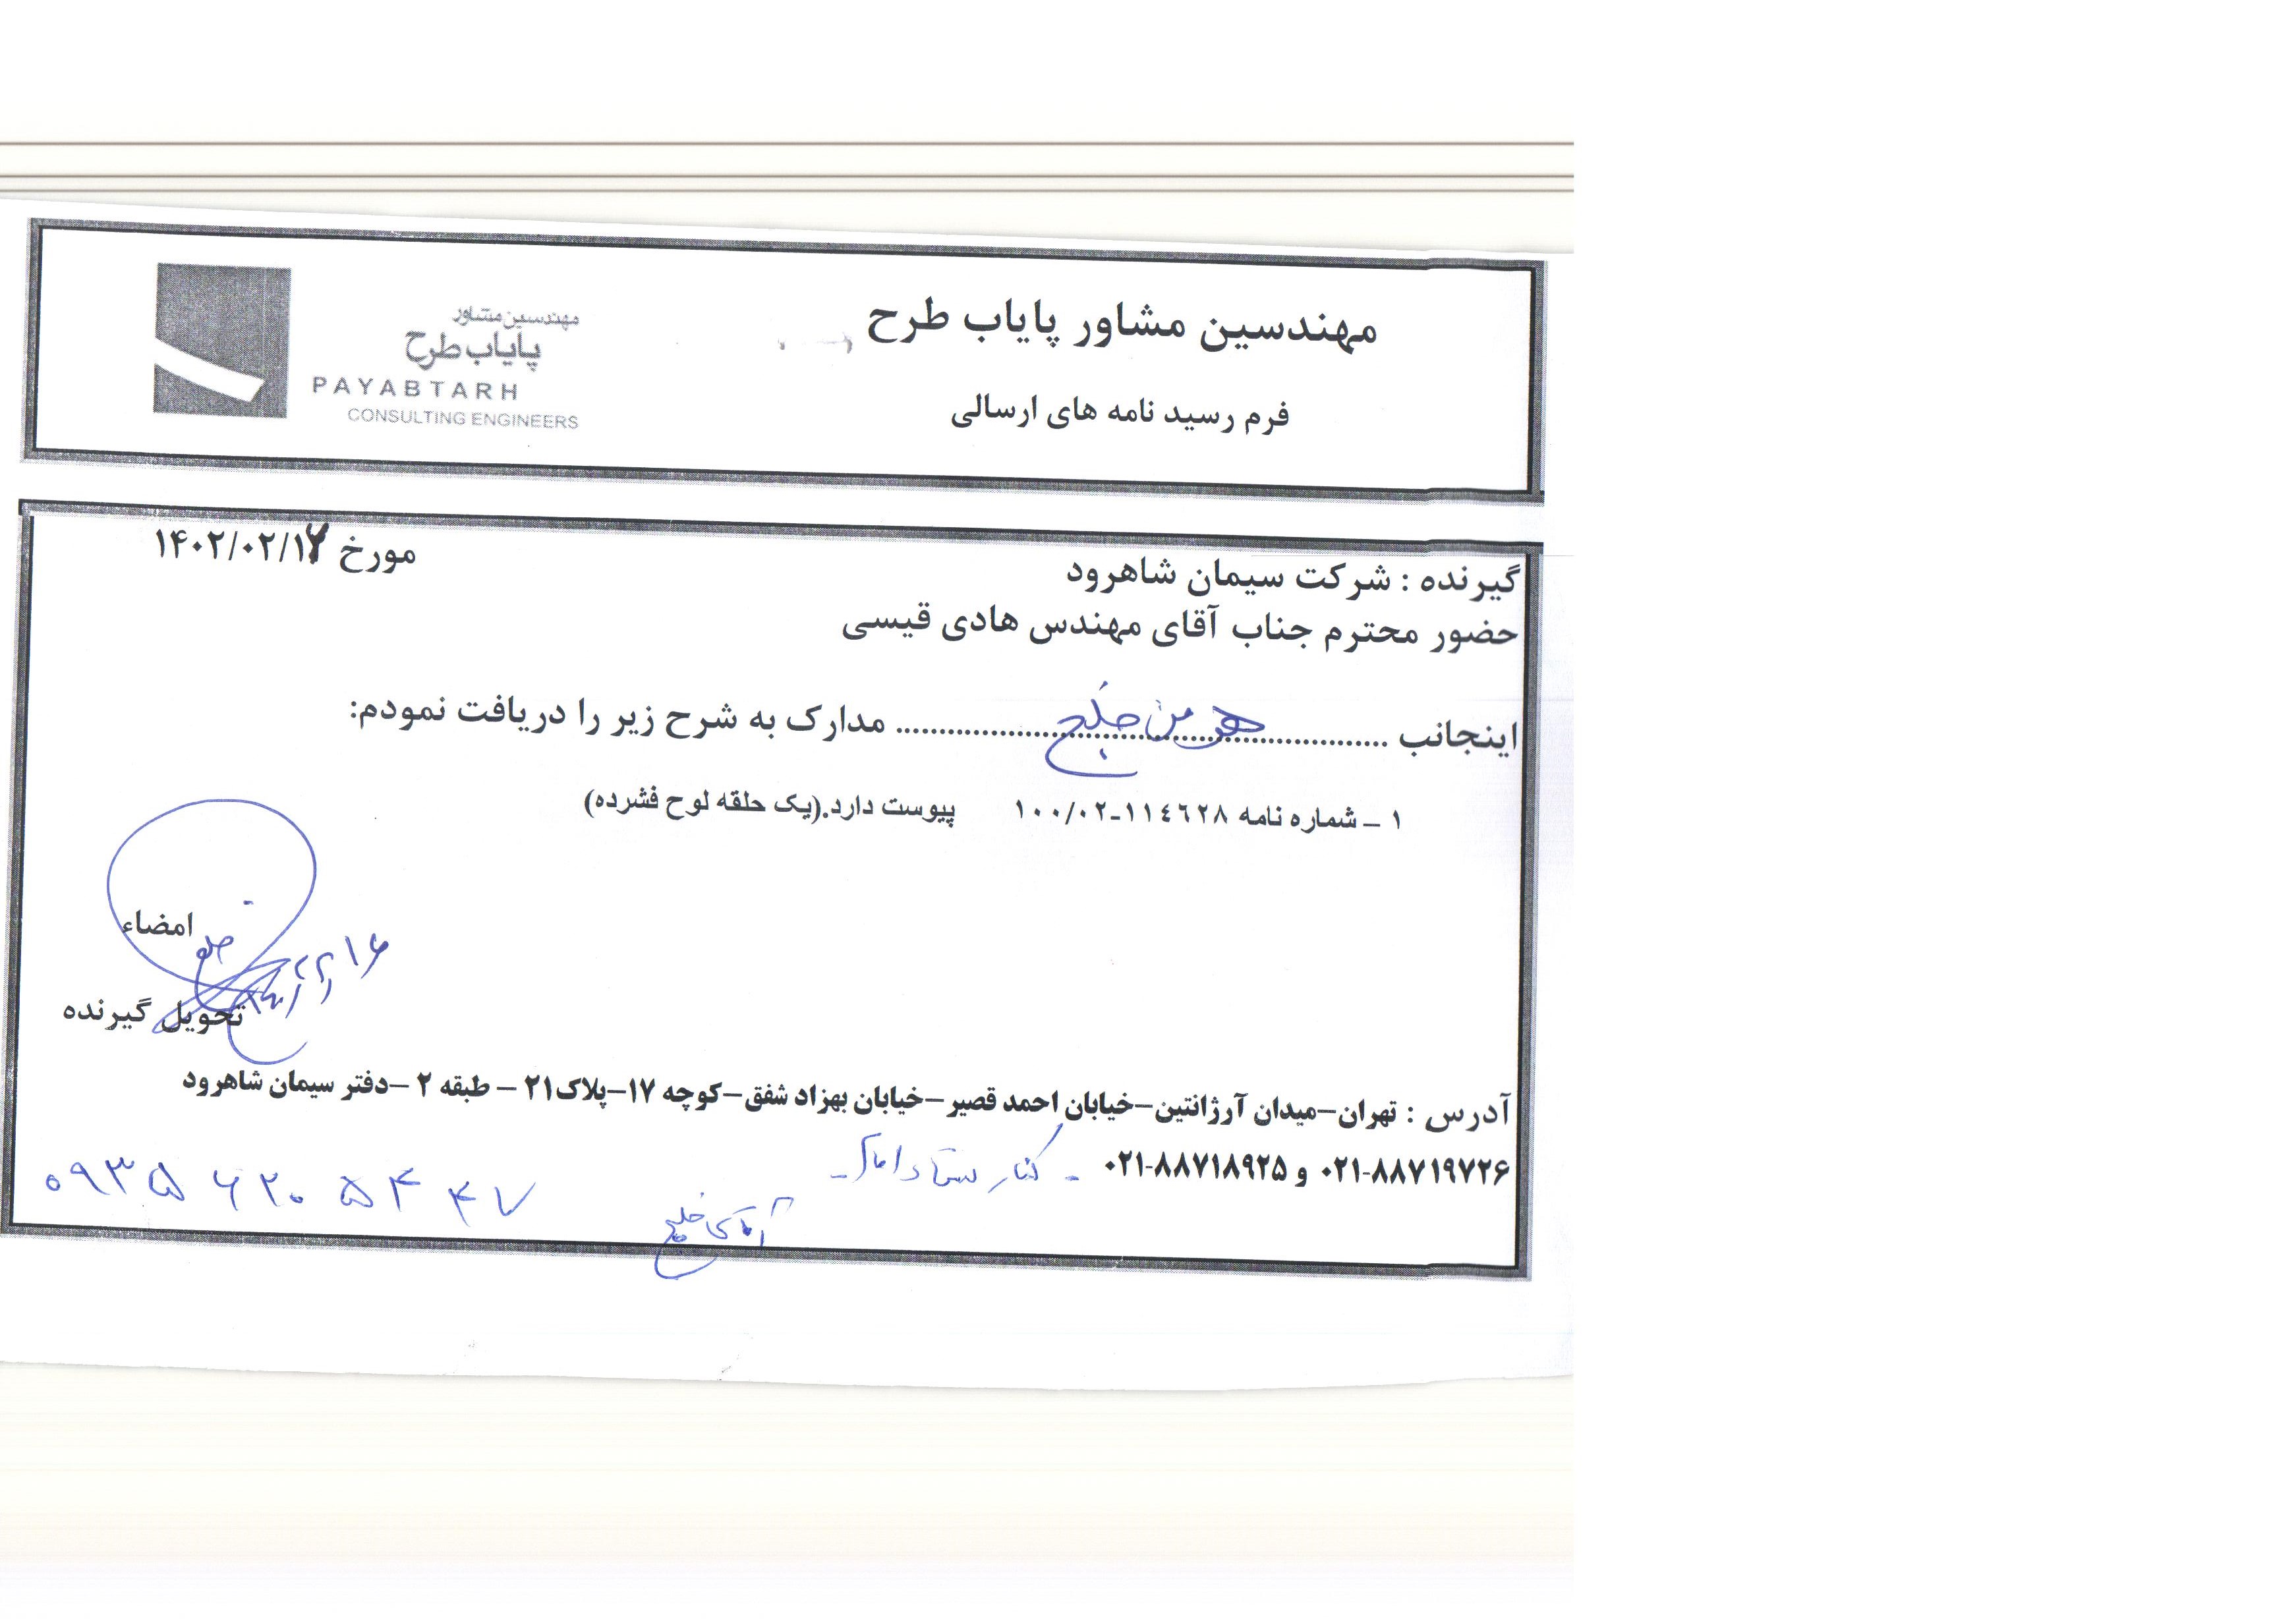 مهندسین مشاور پایاب طرح
فرم رسید نامه های ارسالی
مهندسین مشاور
پایاب طرح
PAYABTARH
CONSULTING ENGINEERS
مورخ ۱۴۰۲/۰۲/۱
گیرنده : شرکت سیمان شاهرود
حضور محترم جناب آقای مهندس هادی قیسی
اینجانب .......... خلج .......... مدارک به شرح زیر را دریافت نمودم:
۱ – شماره نامه ۱۱٤٦۲۸-۱۰۰/۰۲ پیوست دارد.(یک حلقه لوح فشرده)
امضاء
تحویل گیرنده
آدرس : تهران–میدان آرژانتین–خیابان احمد قصیر–خیابان بهزاد شفق–کوچه ۱۷–پلاک۲۱ – طبقه ۲ –دفتر سیمان شاهرود
۰۲۱-۸۸۷۱۹۷۲۶ و ۰۲۱-۸۸۷۱۸۹۲۵ - کنار ستاد
آقای خلج ۰۹۳۵ ۶۲۰ ۵۴ ۴۷